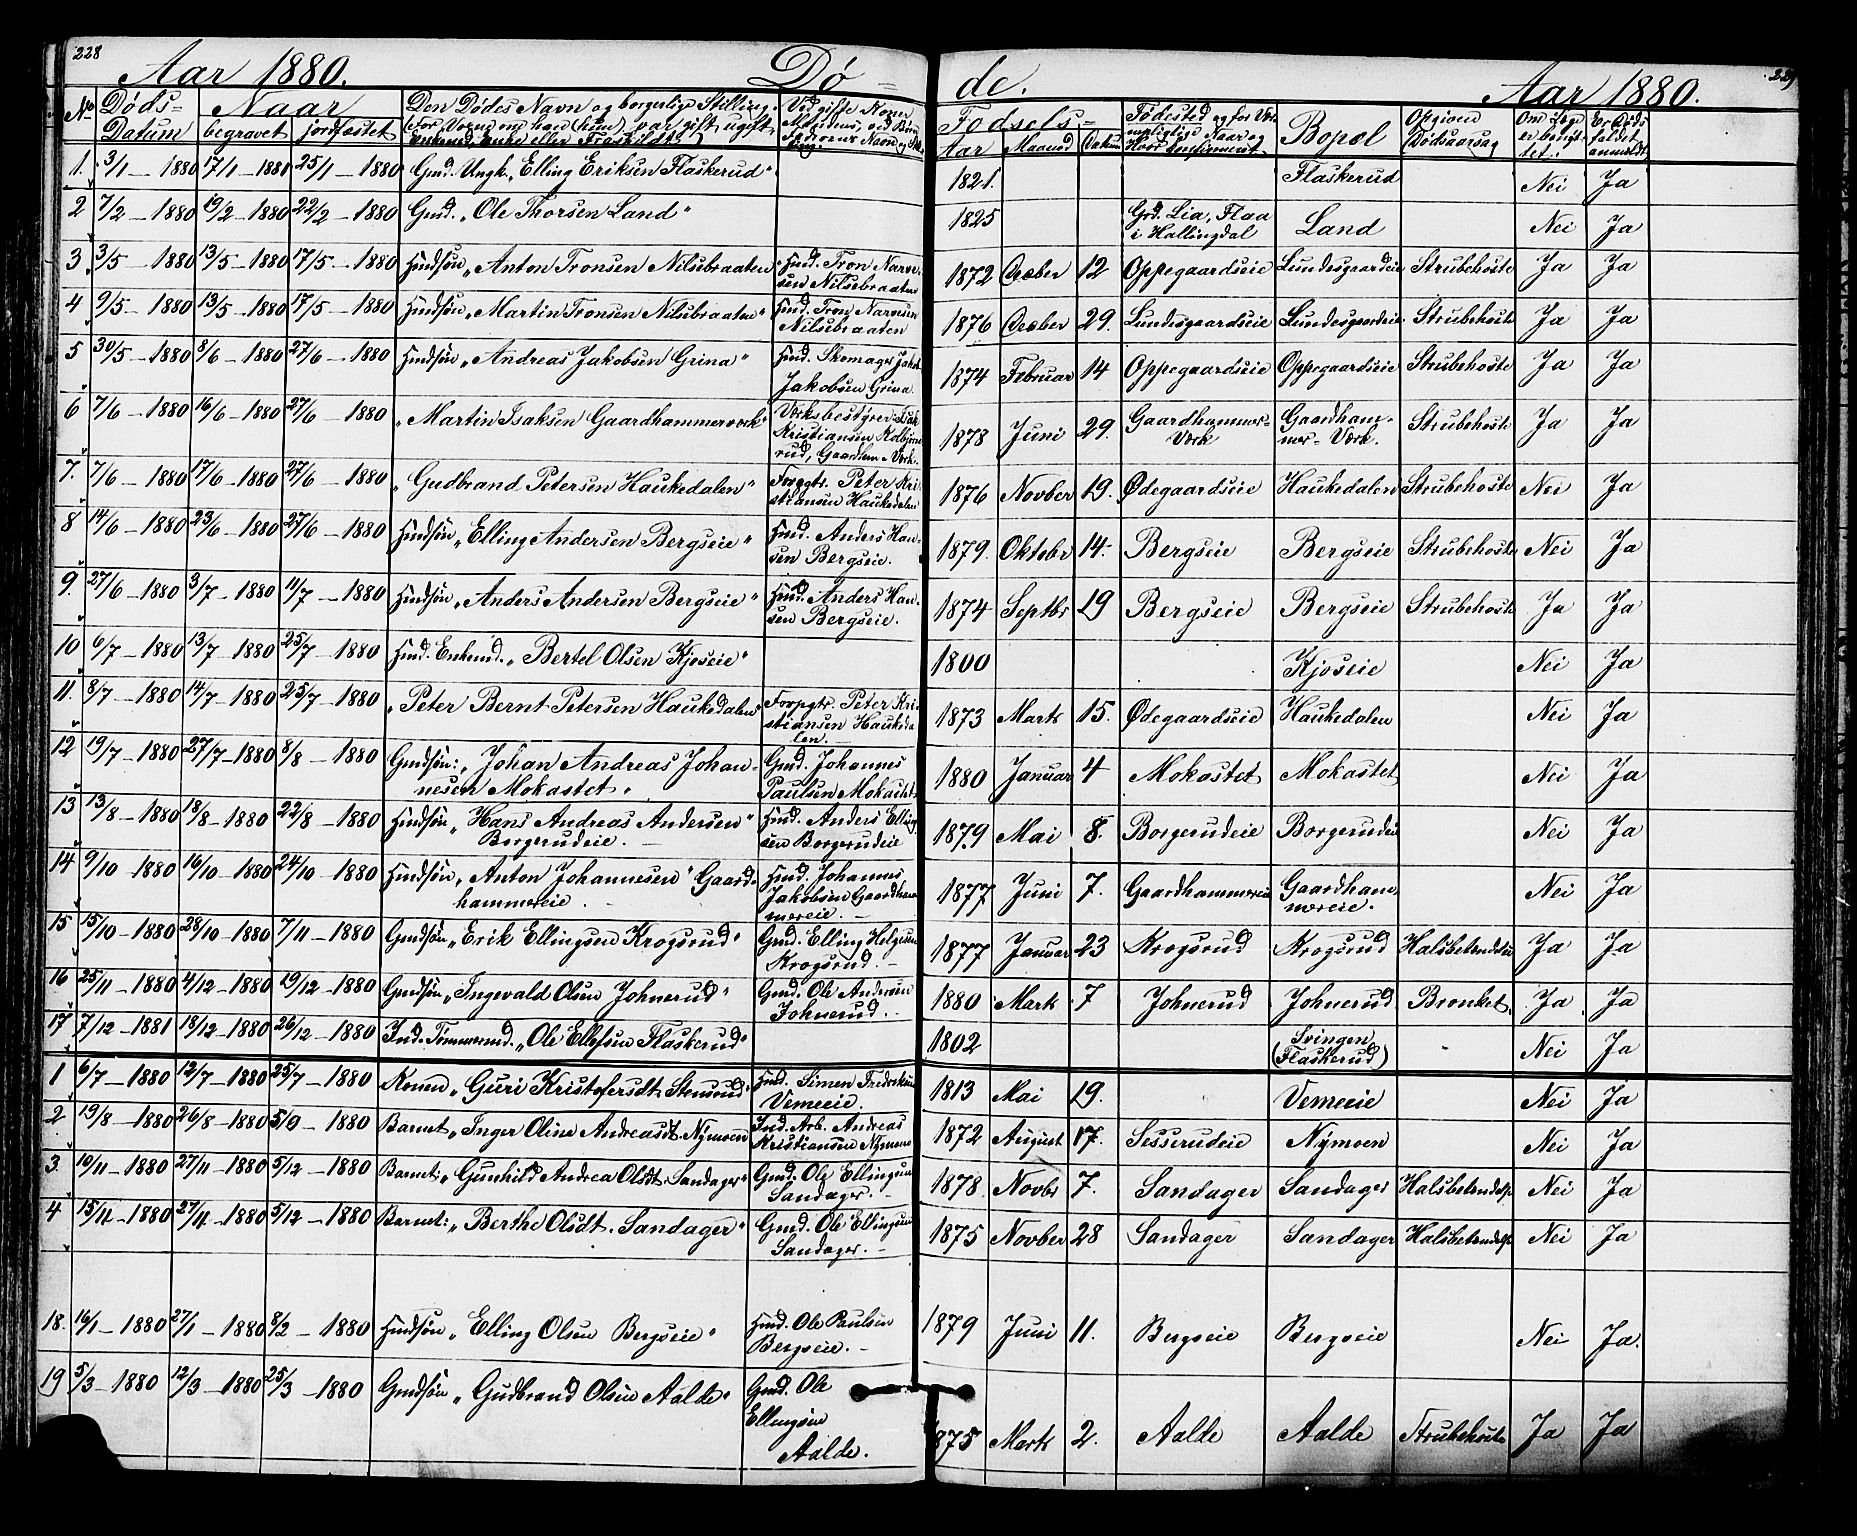 228
Aar 1880. Dø-
de. Aar 1880.
229
No Døds- Datum Naar begravet jordfæstet Den Dødes Navn og borgerlige Stilling. (For Voxne om han (hun) var gift, ugift, Enkemd., Enke eller Fraskildt)
Fødsels- Aar Maaned Datum Bopæl Opgiven Dødsaarsag Er Døds-faldet anmeldt
1. 3/1 - 1880 17/1 - 1880 25/1 - 1880 Gmd. Ungk. „Elling Eriksen Flaskerud" 1821. Flaskerud Nei Ja
2 7/2 - 1880 19/2 - 1880 22/2 - 1880 Gmd. „Ole Thorsen Land" 1825 Grd. Lia, Flaa i Hallingdal Land Nei Ja
3 3/5 - 1880 13/5 - 1880 17/5 - 1880 Hmdsøn „Anton Tronsen Nilsbraaten" Hmd. Tron Narve-
sen Nilsebraaten 1872 Decber 12 Oppegaardseie Lundesgaardeie Strubehoste Ja Ja
4 9/5 - 1880 13/5 - 1880 17/5 - 1880 Hmdsøn „Martin Tronsen Nilsbraaten" Hmd. Tron Narvesen
Nilsbraaten 1876 Decber 29. Lundesgaardseie Lundesgaardeie Strubehoste Ja Ja
5 30/5 - 1880 8/6 - 1880 27/6 - 1880 Hmdsøn „Andreas Jakobsen Grina" Hmd. Skomager Jakob
Jakobsen Grina 1874 Februar 14 Oppegaardseie Oppegaardseie Strubehoste Ja Ja
6 7/6 - 1880 16/6 - 1880 27/6 - 1880 „Martin Isaksen Gaardhammerværk" Værksbestyrer Isak
Kristiansen Kolbjørns-
rud, Gaardhm-Værk. 1878 Juni 29. Gaardhammer-Værk Gaardham-mer-Værk. Strubehoste Ja Ja
7. 7/6 - 1880 17/6 - 1880 27/6 - 1880 „Gudbrand Petersen Haukedalen" Forpgtr. Peter Kri-
stiansen Haukedalen 1876 Novber 19. Ødegaardseie Haukedalen Strubehoste Nei Ja
8 14/6 - 1880 23/6 - 1880 27/6 - 1880 Hmdsøn „Elling Andersen Bergseie" Hmd. Anders Han-
sen Bergseie. 1879. Oktober 14. Bergseie Bergseie Strubehoste Nei Ja
9. 27/6 - 1880 3/7 - 1880 11/7 - 1880 Hmdsøn „Anders Andersen Bergseie" Hmd. Anders Han-
sen Bergseie. 1874 Septbr 19 Bergseie Bergseie Strubehoste Ja Ja
10 6/7 - 1880 13/7 - 1880 25/7 - 1880 Hmd. Enkemd. „Bertel Olsen Kjøseie" 1800 Kjøseie Nei Ja
11. 8/7 - 1880 14/7 - 1880 25/7 - 1880 „Peter Bernt Petersen Haukedalen" Forpgtr. Peter Kri-
stiansen Haukeda-
len. 1873 Marts 15. Ødegaardseie Haukedalen Nei Ja
12 19/7 - 1880 27/7 - 1880 8/8 - 1880 Gmdsøn: „Johan Andreas Johan-
nesen Mokastet" Gmd. Johannes
Paulsen Mokastet 1880 Januar 4 Mokastet Mokastet Nei Ja
13 13/8 - 1880 18/8 - 1880 22/8 - 1880 Hmdsøn „Hans Andreas Andersen"
Borgerudeie. Hmd. Anders Elling-
sen Borgerudeie 1879 Mai 8. Borgerudeie Borgerudeie Nei Ja
14 9/10 - 1880 16/10 - 1880 24/10 - 1880 Hmdsøn „Anton Johannesen" Gaard-
hammereie. Hmd. Johannes
Jakobsen Gaardham-
mereie. 1877 Juni 7. Gaardhammereie Gaardham-mereie. Nei Ja
15 15/10 - 1880 28/10 - 1880 7/11 - 1880 Gmdsøn „Erik Ellingsen Krogsrud" Gmd. Elling Helgesen
Krogsrud. 1877 Januar 23 Krogsrud Krogsrud Halsbetændelse Ja Ja
16 25/11 - 1880 4/12 - 1880 19/12 - 1880 Gmdsøn „Ingevald Olsen Johnerud" Gmd. Ole Andersen
Johnerud. 1880 Mark 7 Johnerud Johnerud Bronket. Ja Ja
17 7/12 - 1881 18/12 - 1880 26/12 - 1880 Ind. Tømmermd. „Ole Ellefsen Flaskerud" 1802 Svingen (Flaskerud) Nei Ja
1 6/7 - 1880 12/7 - 1880 25/7 - 1880 Konen „Guri Kristofersdt. Stensrud" Hmd. Simen Fredriksen
Vemeeie. 1813 Mai 19. Vemeeie Nei Ja
2 19/8 - 1880 26/8 - 1880 5/9 - 1880 Barnet „Inger Oline Andreasdt. Nymoen Ind. Arb. Andreas
Kristiansen Nymoen 1872 August 17. Sesserudeie Nymoen Nei Ja
3. 19/11 - 1880 27/11 - 1880 5/12 - 1880 Barnet: „Gunhild Andrea Olsdt. Sandager" Gmd. Ole Ellingsen
Sandager. 1878 Novbr 7. Sandager Sandager Halsbetændelse Nei Ja
4 15/11 - 1880 27/11 - 1880 5/12 - 1880 Barnet: „Berthe Olsdt. Sandager" Gmd. Ole Ellingsen
Sandager. 1875 Novber 28 Sandager Sandager Halsbetændelse Nei Ja
18. 16/1 - 1880 27/1 - 1880 8/2 - 1880 Hmdsøn „Elling Olsen Bergseie" Hmd. Ole Paulsen
Bergseie. 1879 Juni 11. Bergseie Bergseie Nei Ja.
19 5/3 - 1880 12/3 - 1880 25/3 - 1880 Gmdsøn „Gudbrand Olsen Aalde" Gmd. Ole
Ellingsen
Aalde. 1875 Mark 2. Aalde Aalde Strubehoste Ja Ja